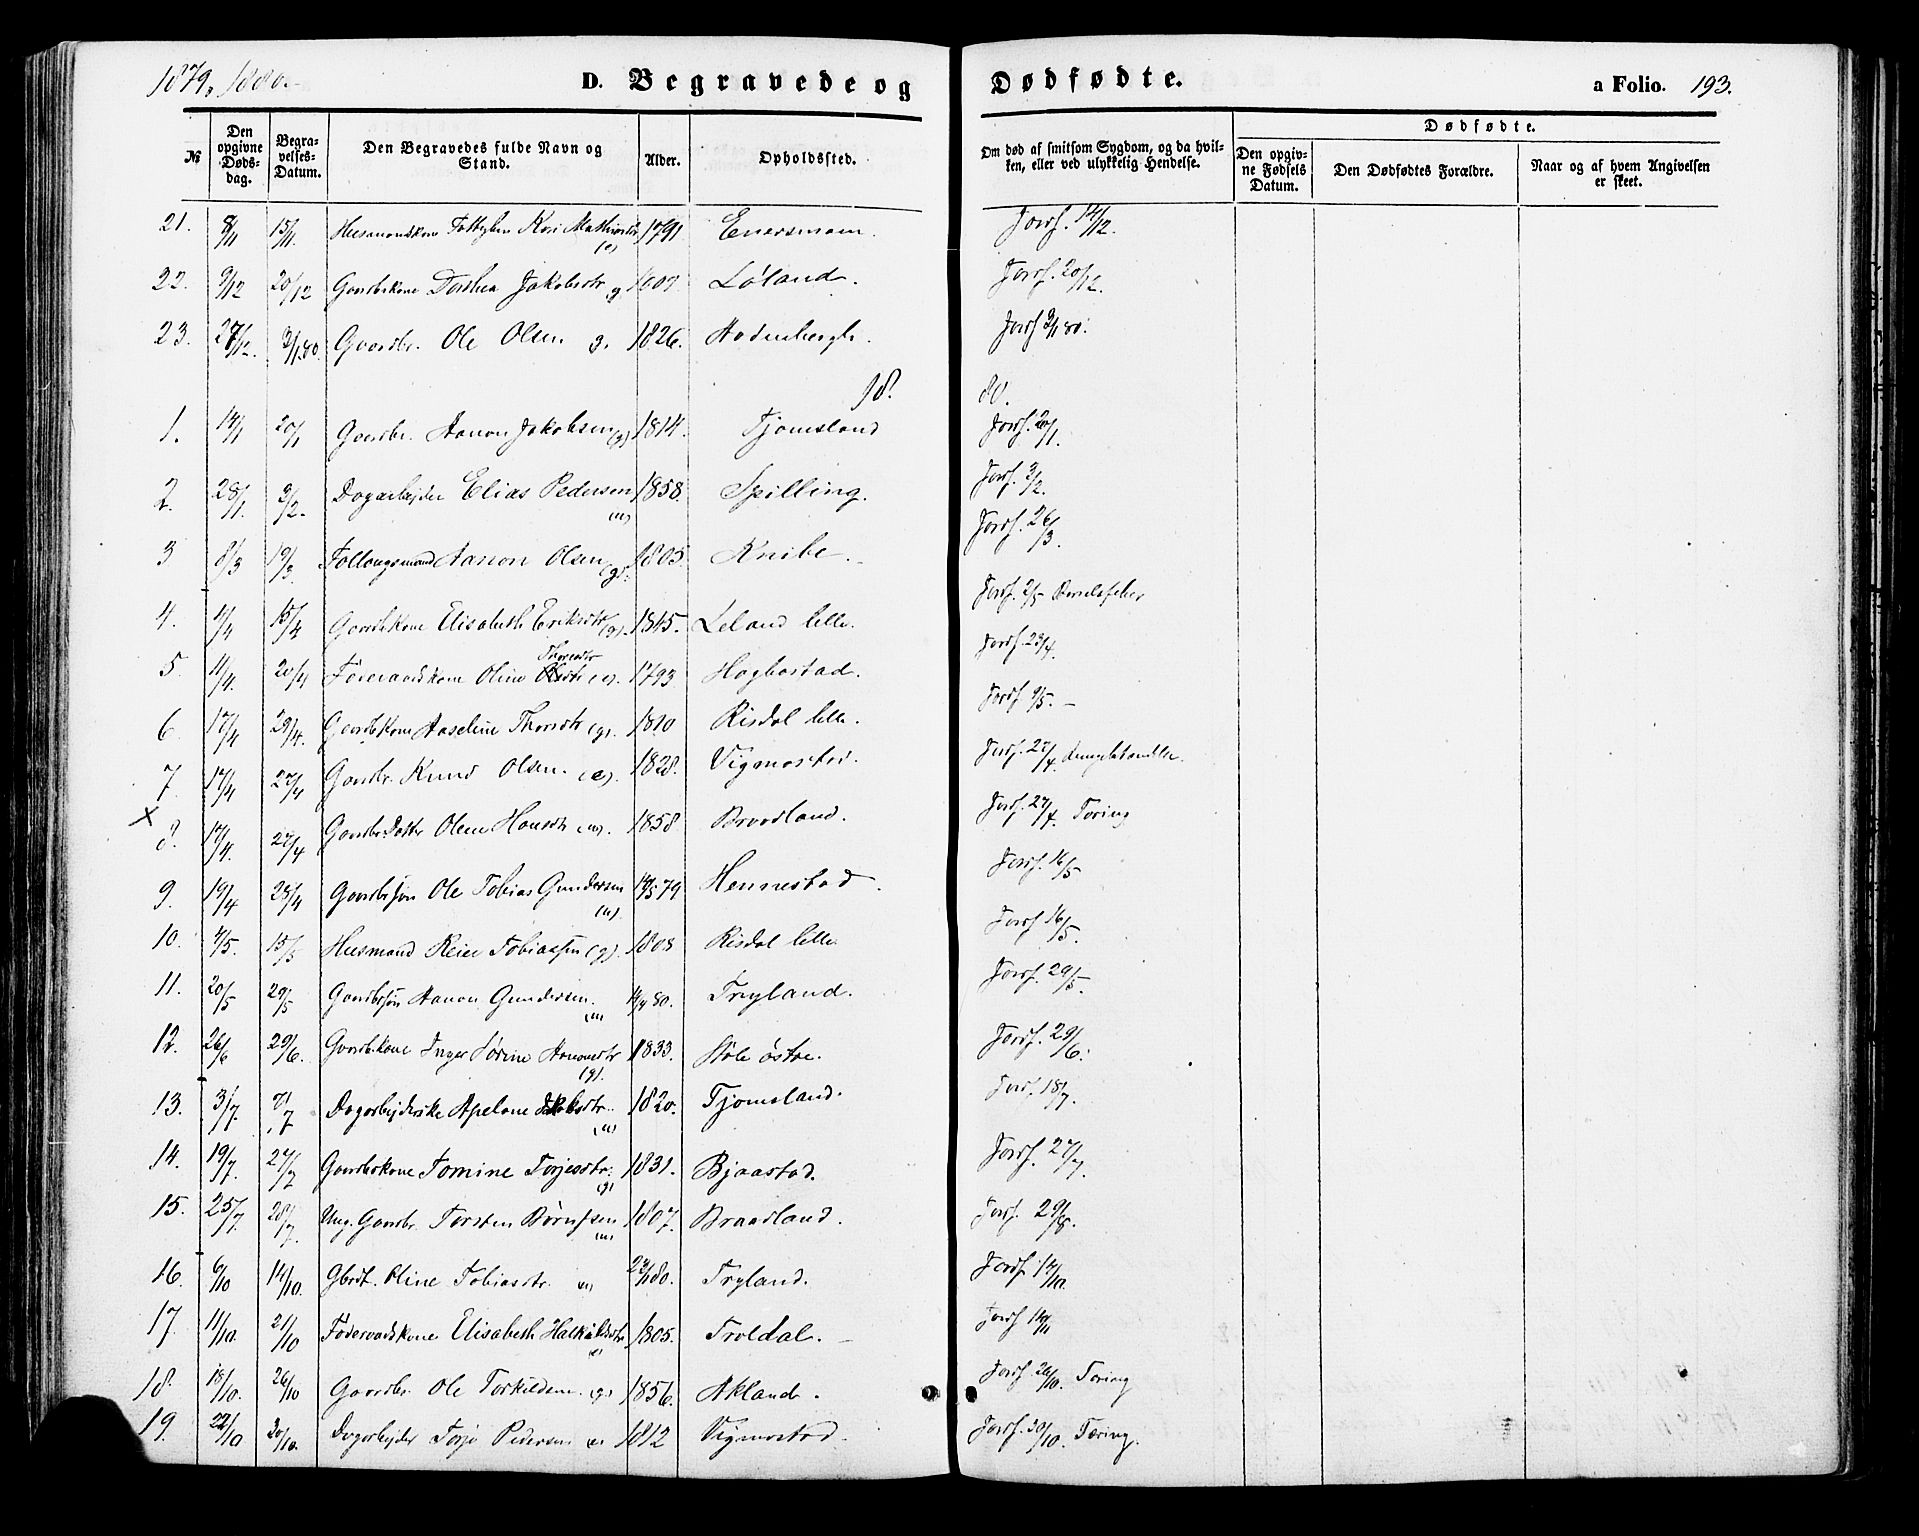 1879, 1880.
D. Begravede og Dødfødte.
a Folio. 193.
№
Den opgivne Døds-dag.
Begra-velses-Datum.
Den Begravedes fulde Navn og Stand.
Alder.
Opholdssted.
Om død af smitsom Sygdom, og da hvil-ken, eller ved ulykkelig Hendelse.
Dødfødte.
Den opgiv-ne Fødsels Datum.
Den Dødfødtes Forældre.
Naar og af hvem Angivelsen er skeet.
21. 8/11 15/11. Kari 1791 Jordf. 14/12.
22. 9/12 20/12 Gaardbkone Dorthea Jakobsdtr g Løland. Jordf. 20/12.
23. 27/12. 3/1 80. Gaardbr. Ole Olsen g. 1826. Jordf 3/1 80.
18. 80.
1. 14/1 20/1 Gaardbr. Aanon Jakobsen (g) 1814. Tjomsland Jordf. 20/1.
2. 28/1. 3/2. Dagarbejder Elias Pedersen (u) 1858. Spilling. Jordf. 3/2.
3 8/3 19/3 Aanon Olsen (g). 1805 Knibe. Jordf. 26/3.
4. 4/4 15/4 Gaardbkone Elisabeth Eriksdtr (g). 1845. Leland lille. Jordf. 2/5 Barselsfeber
5. 11/4. 20/4 Føderaadskone Oline Thoresdtr (e). 1793 Høgbostad. Jordf. 23/4.
6. 17/4 29/4. Gaardbkone Aaseline Thorsdtr (g). 1810 Risdal lille. Jordf 9/5. –
7. 17/4 27/4 Gaardbr. Knud Olsen. (e). 1828. Vigmostad. Jordf. 27/4. Lungebetændelse.
X 8. 17/4. 27/4 Gaardbr.Datter Olene Hansdtr (u). 1858 Braadland. Jordf. 27/4. Tæring
9. 19/4 28/4 Gaardbrsøn Ole Tobias Gundersen (u). 79 Hennestad. Jordf. 16/5
10. 4/5. 15/5 Husmand Reier Tobiassen (g). 1808 Risdal lille Jordf 16/5.
11. 20/5 29/5 Gaardbrsøn Aanon Gundersen. (u) 14/4 80. Tryland. Jordf. 29/5.
12. 26/6 29/6. Gaardbrkone Inger Serine Aanonsdtr (g). 1833. Hole østre. Jordf. 29/6.
13. 3/7. 7/7 Dagarbejderske Apelone Jakobsdtr. (u) 1820. Tjomsland. Jordf. 18/7.
14. 19/7. 27/7 Gaardbrkone Tomine Terjesdtr. (g) 1831. Bjaastad. Jordf. 27/7.
15. 25/7. 28/7. Ung. Gaardbr. Torsten Børufsen (u) 1807. Braadland. Jordf. 29/8.
16. 6/10 14/10. Gbrdt. Oline Tobiasdtr. (u) 23/1 80. Tryland. Jordf. 14/10.
17. 11/10. 21/10 Føderaadskone Elisabeth (e) 1805. Troldal. – Jordf 14/11
18. 18/10. 26/10 Gaardbr. Ole Torkildsen. (g) 1856. Akland. Jordf. 26/10. Tæring
19. 22/10 30/10. Dagarbejder Terje Pedersen (e) 1812 Vigmostad. Jordf. 30/10. Tæring.